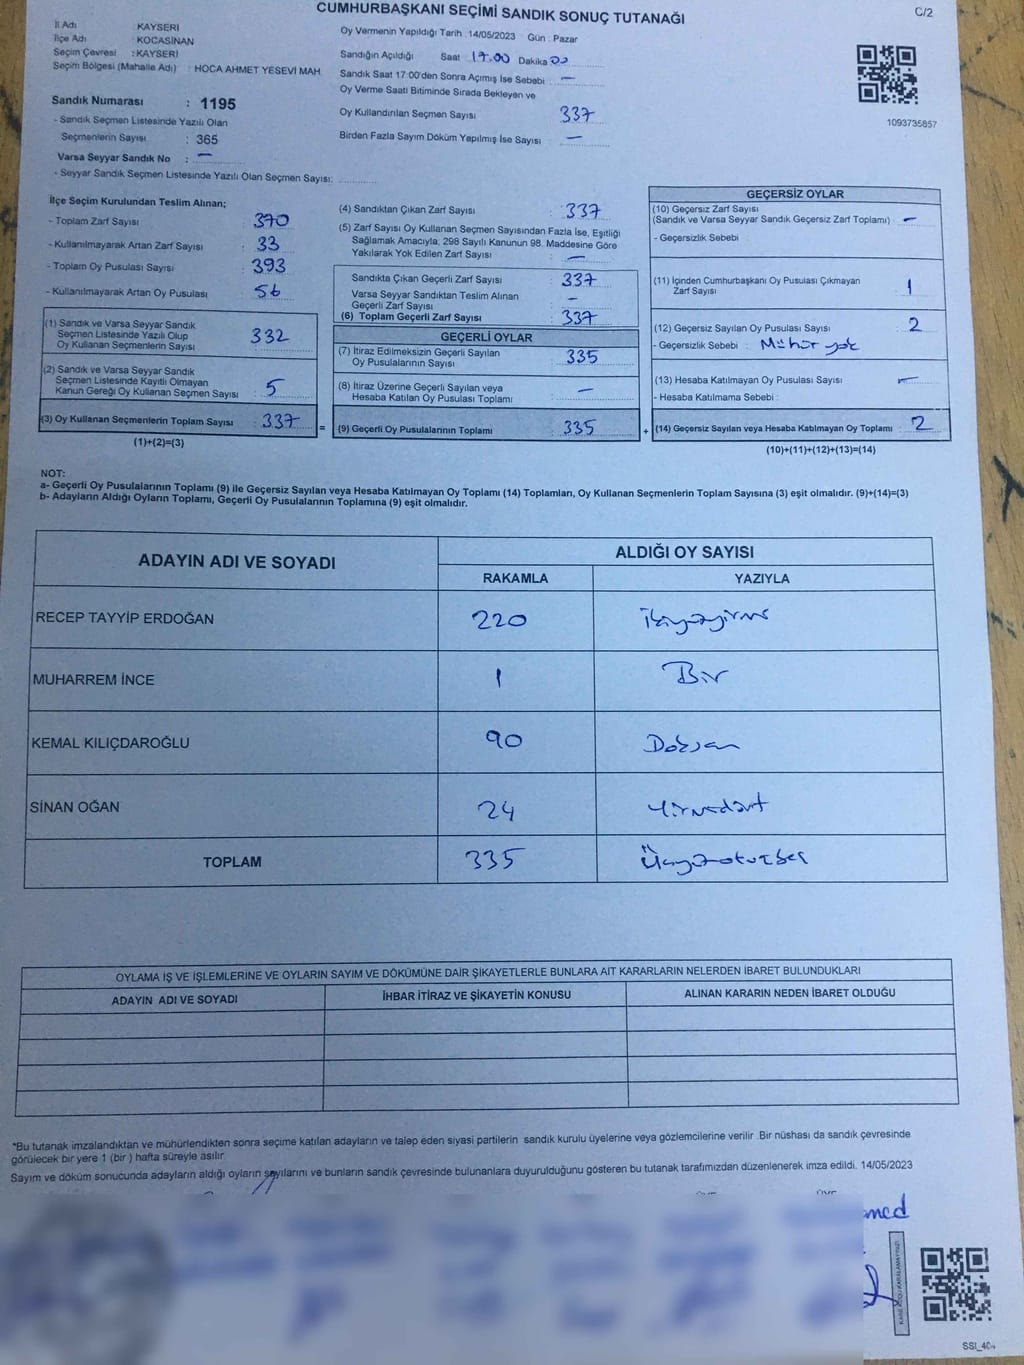 CUMHURBAŞKANI SEÇİMİ SANDIK SONUÇ TUTANAĞI
C/2
İl Adı : KAYSERİ
İlçe Adı : KOCASİNAN
Seçim Çevresi : KAYSERİ
Seçim Bölgesi (Mahalle Adı) : HOCA AHMET YESEVİ MAH
Sandık Numarası : 1195
- Sandık Seçmen Listesinde Yazılı Olan
Seçmenlerin Sayısı : 365
Varsa Seyyar Sandık No : —
- Seyyar Sandık Seçmen Listesinde Yazılı Olan Seçmen Sayısı:
Oy Vermenin Yapıldığı Tarih : 14/05/2023 Gün : Pazar
Sandığın Açıldığı Saat 17.00 Dakika 00
Sandık Saat 17:00'den Sonra Açımış İse Sebebi : —
Oy Verme Saati Bitiminde Sırada Bekleyen ve
Oy Kullandırılan Seçmen Sayısı 337
Birden Fazla Sayım Döküm Yapılmış İse Sayısı —
1093735857
İlçe Seçim Kurulundan Teslim Alınan;
- Toplam Zarf Sayısı : 370
- Kullanılmayarak Artan Zarf Sayısı : 33
- Toplam Oy Pusulası Sayısı : 393
- Kullanılmayarak Artan Oy Pusulası : 56
(1) Sandık ve Varsa Seyyar Sandık
Seçmen Listesinde Yazılı Olup
Oy Kullanan Seçmenlerin Sayısı : 332
(2) Sandık ve Varsa Seyyar Sandık
Seçmen Listesinde Kayıtlı Olmayan
Kanun Gereği Oy Kullanan Seçmen Sayısı : 5
(3) Oy Kullanan Seçmenlerin Toplam Sayısı : 337
(1)+(2)=(3)
=
(4) Sandıktan Çıkan Zarf Sayısı : 337
(5) Zarf Sayısı Oy Kullanan Seçmen Sayısından Fazla İse, Eşitliği
Sağlamak Amacıyla; 298 Sayılı Kanunun 98. Maddesine Göre
Yakılarak Yok Edilen Zarf Sayısı : —
Sandıkta Çıkan Geçerli Zarf Sayısı : 337
Varsa Seyyar Sandıktan Teslim Alınan
Geçerli Zarf Sayısı : —
(6) Toplam Geçerli Zarf Sayısı : 337
GEÇERLİ OYLAR
(7) İtiraz Edilmeksizin Geçerli Sayılan
Oy Pusulalarının Sayısı : 335
(8) İtiraz Üzerine Geçerli Sayılan veya
Hesaba Katılan Oy Pusulası Toplamı : —
(9) Geçerli Oy Pusulalarının Toplamı : 335
+
GEÇERSİZ OYLAR
(10) Geçersiz Zarf Sayısı
(Sandık ve Varsa Seyyar Sandık Geçersiz Zarf Toplamı) : —
- Geçersizlik Sebebi :
(11) İçinden Cumhurbaşkanı Oy Pusulası Çıkmayan
Zarf Sayısı : 1
(12) Geçersiz Sayılan Oy Pusulası Sayısı : 2
- Geçersizlik Sebebi : Mühür yok
(13) Hesaba Katılmayan Oy Pusulası Sayısı : —
- Hesaba Katılmama Sebebi :
(14) Geçersiz Sayılan veya Hesaba Katılmayan Oy Toplamı : 2
(10)+(11)+(12)+(13)=(14)
NOT:
a- Geçerli Oy Pusulalarının Toplamı (9) ile Geçersiz Sayılan veya Hesaba Katılmayan Oy Toplamı (14) Toplamları, Oy Kullanan Seçmenlerin Toplam Sayısına (3) eşit olmalıdır. (9)+(14)=(3)
b- Adayların Aldığı Oyların Toplamı, Geçerli Oy Pusulalarının Toplamına (9) eşit olmalıdır.
ADAYIN ADI VE SOYADI
ALDIĞI OY SAYISI
RAKAMLA YAZIYLA
RECEP TAYYİP ERDOĞAN 220 ikiyüzyirmi
MUHARREM İNCE 1 Bir
KEMAL KILIÇDAROĞLU 90 Doksan
SİNAN OĞAN 24 Yirmidört
TOPLAM 335 Üçyüzotuzbeş
OYLAMA İŞ VE İŞLEMLERİNE VE OYLARIN SAYIM VE DÖKÜMÜNE DAİR ŞİKAYETLERLE BUNLARA AİT KARARLARIN NELERDEN İBARET BULUNDUKLARI
ADAYIN ADI VE SOYADI İHBAR İTİRAZ VE ŞİKAYETİN KONUSU ALINAN KARARIN NEDEN İBARET OLDUĞU
*Bu tutanak imzalandıktan ve mühürlendikten sonra seçime katılan adayların ve talep eden siyasi partilerin sandık kurulu üyelerine veya gözlemcilerine verilir .Bir nüshası da sandık çevresinde
görülecek bir yere 1 (bir ) hafta süreyle asılır
Sayım ve döküm sonucunda adayların aldığı oyların sayılarını ve bunların sandık çevresinde bulunanlara duyurulduğunu gösteren bu tutanak tarafımızdan düzenlenerek imza edildi. 14/05/2023
SSI_404